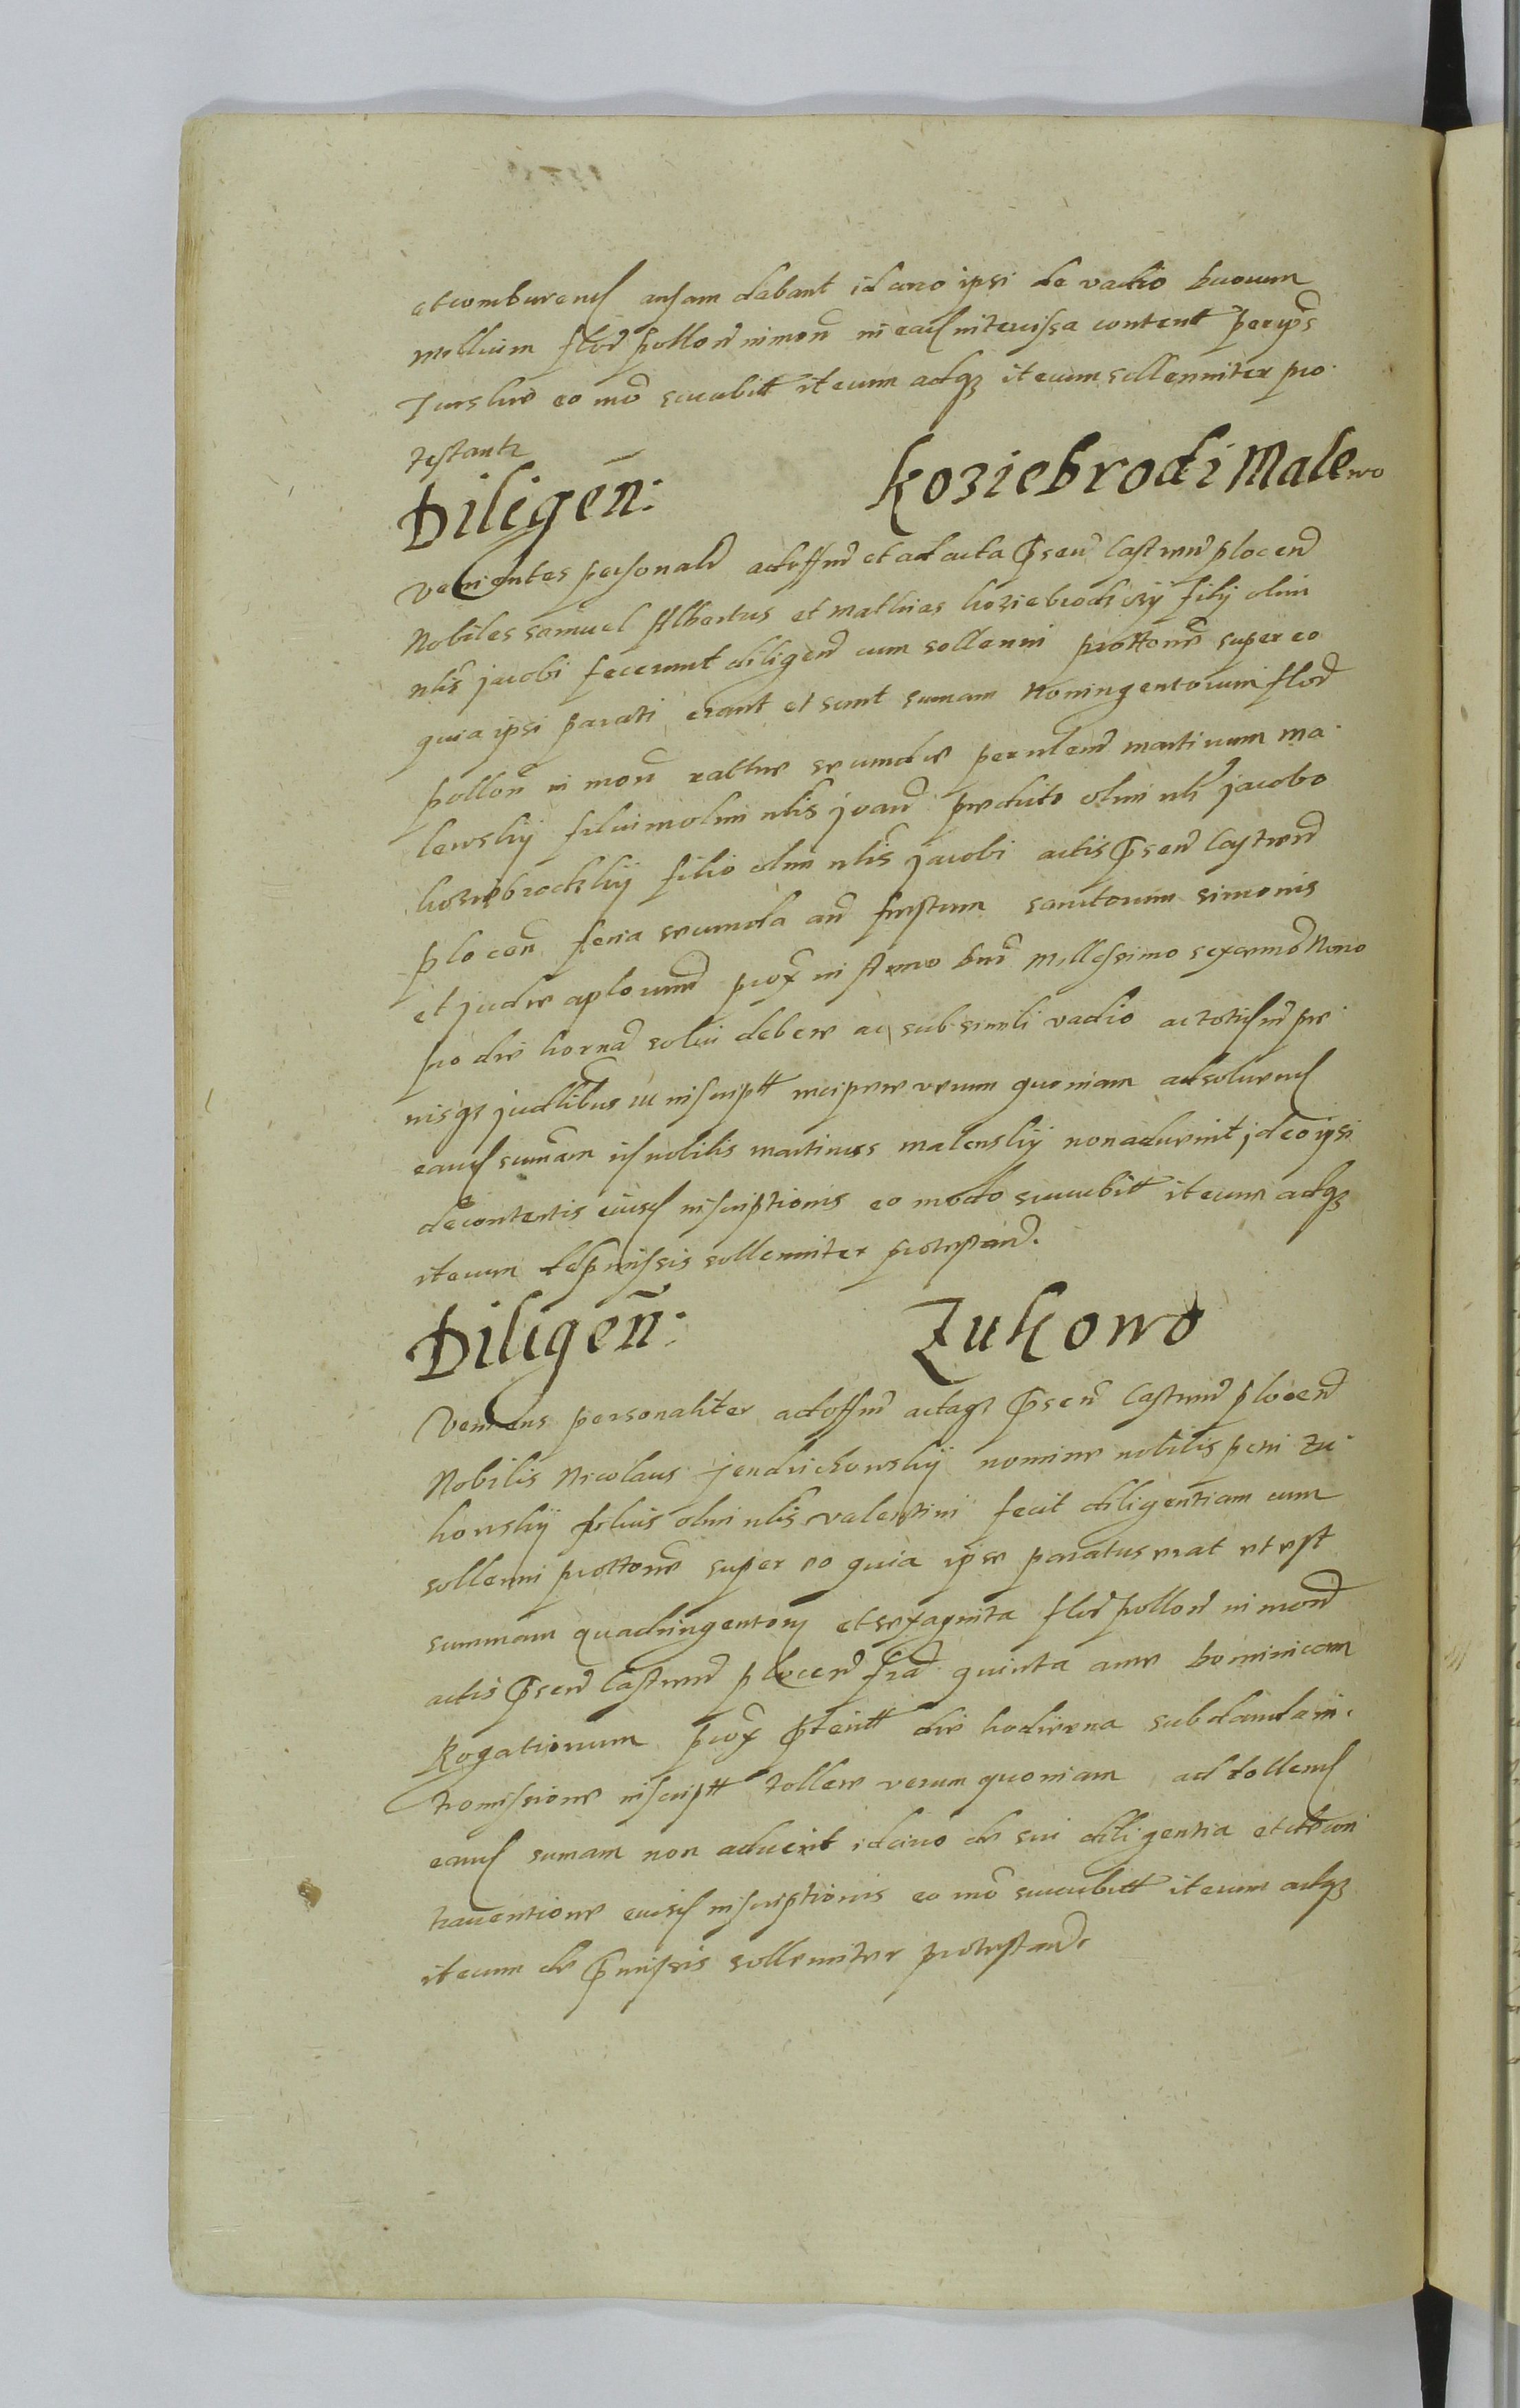 et comburend ausam dabant idcirco ipsi de vadio duorum
Millium flor pollon in mon in ead intercissa content per ips
Turskie eo mo succubitt iterum adqz iterum sollenniter pro
testantr
Diligen: Koziebrodi Malewo
Venientes personalr ad offm et ad acta Psen Castren plocen
Nobiles samuel Albertus et Mathias koziebrodsczy filij olim
nlis jacobi fecerunt diligen cum sollenni prottone super eo
quia ipsi parati erant et sunt sumam Noningentorum flor
pollon in mon raltne secundae per nlem martinum ma
lewskij filium olim nlis joan predicto olim nli jacobo
koziebrodskij filio olim nlis jacobi actis Psen Castren
plocen feria secunda an festum sanctorum simonis
et judae aplorum prox in Anno Dni Millessimo sexcentmo Nono
pro die horna solvi debere ac sub simili vadio ac
nisqz judlibus in inscriptt recipere verum quoniam ad solvend
eand sumam is nobilis martinus malewskij non advenit jdeo ipsi
de contentis eiusd inscriptionis eo modo succubitt iterum adqz
iterum de pmissis sollenniter protestand.
Diligen: Zukowo
Veniens personaliter ad offm actaqz Psen Castren plocen
Nobilis Nicolaus jendrichowskij nomine nobilis petri zu
kowskij filius olim nlis valentini fecit diligentiam cum
sollenni prottone super eo quia ipse paratus erat et est
summam quadringentorz et sexaginta flor pollon in mon
actis Psen Castren plocen fra quinta ante Dominicam
Rogationum prox Pteritt die hodierna sub danda in
tromissione inscriptt tollere verum quoniam ad tollend
eand sumam non advenit idcirco de sui diligentia et de con
traventione eiusd inscriptionis eo mo succubitt iterum adqz
iterum de Pmissis sollenniter protestand